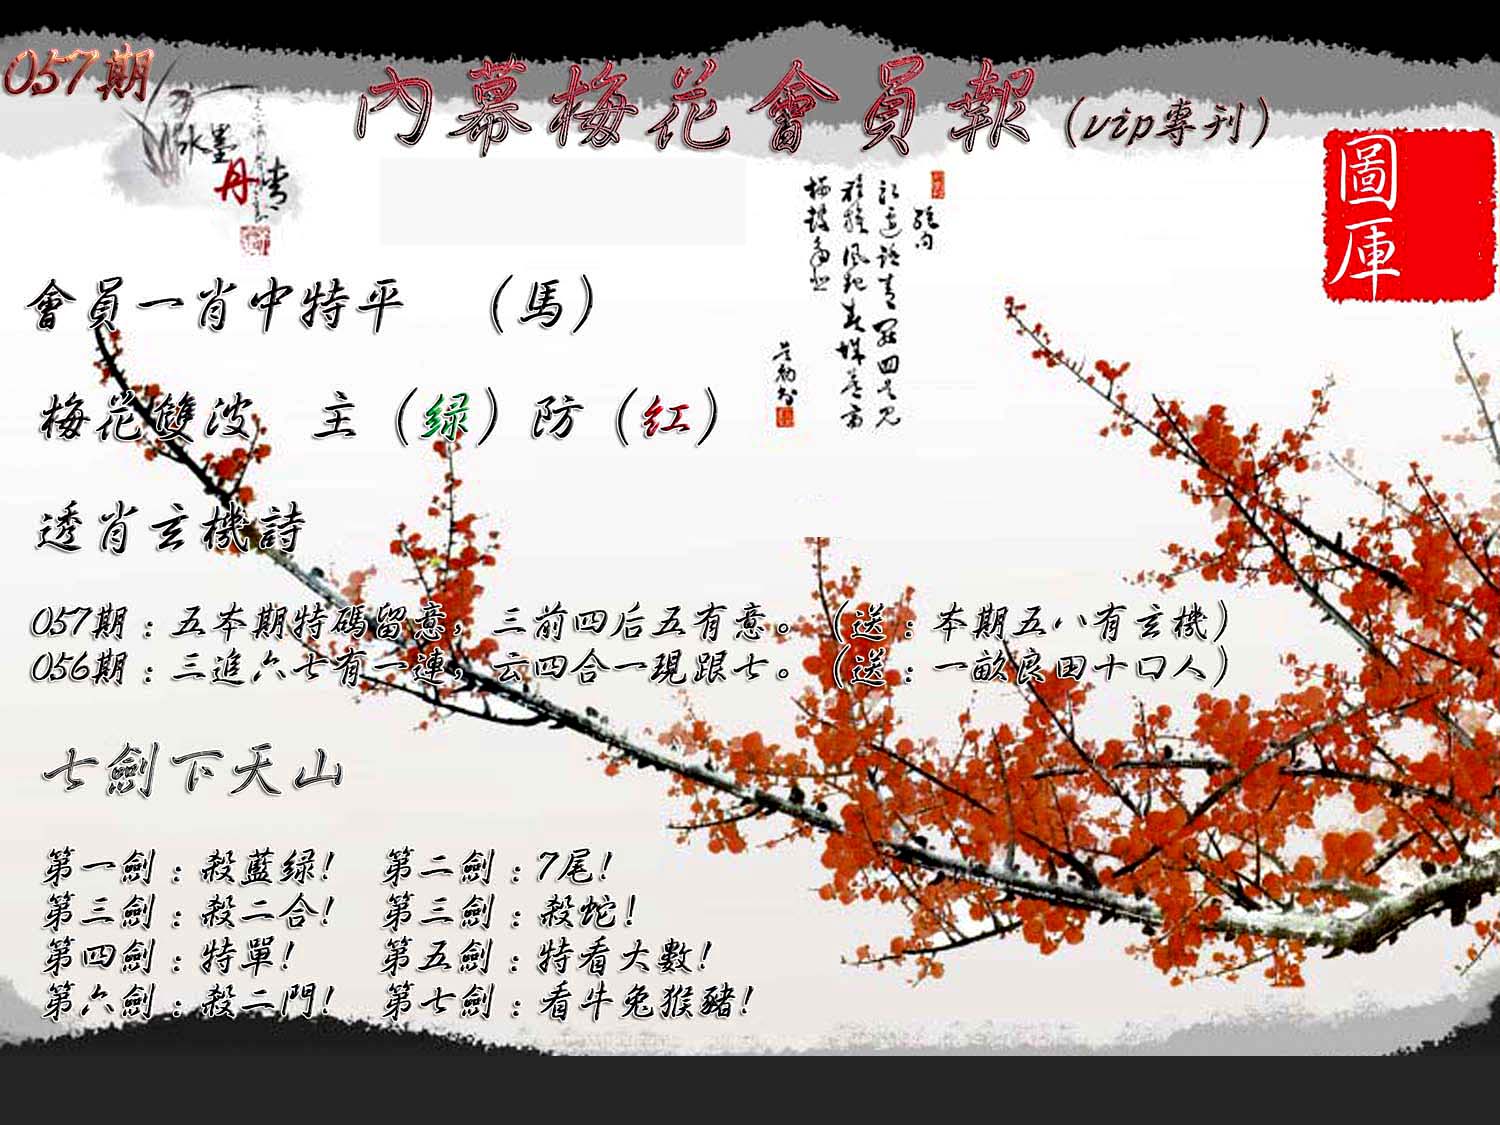 057期
內幕梅花會員報（vip專刊）
水墨
丹青
圖庫
會員一肖中特平　（馬）
梅花雙波　主（绿）防（红）
透肖玄機詩
057期：五本期特碼留意，三前四后五有意。（送：本期五八有玄機）
056期：三進六七有一連，云四合一現跟七。（送：一畝良田十口人）
七劍下天山
第一劍：殺藍绿！　第二劍：7尾！
第三劍：殺二合！　第三劍：殺蛇！
第四劍：特單！　第五劍：特看大數！
第六劍：殺二門！　第七劍：看牛兔猴豬！